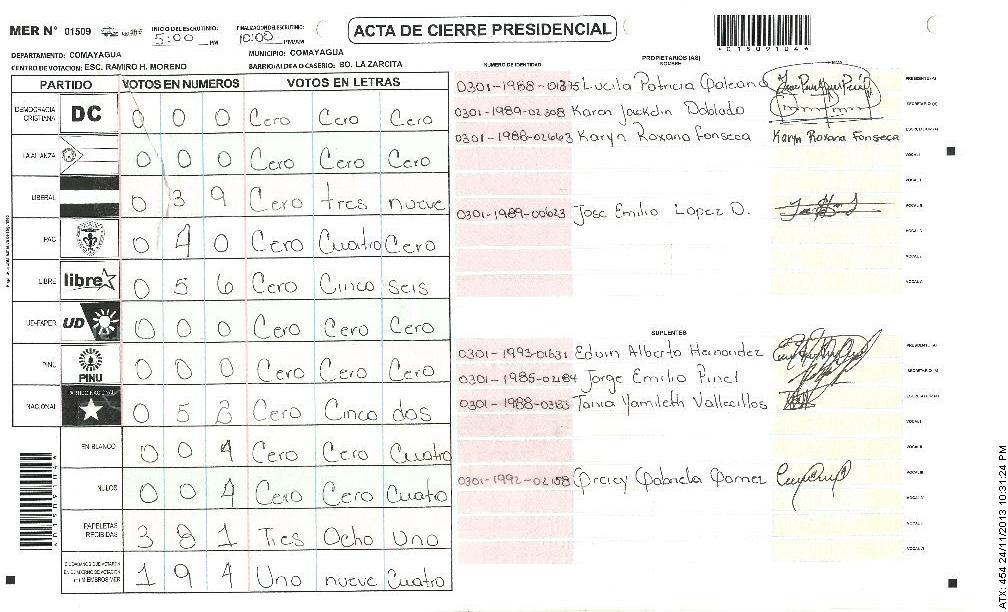 MER N° 01509
INICIO DEL ESCRUTINIO: 5:00 PM
FINALIZACION DEL ESCRUTINIO: 10:00 PM/AM
ACTA DE CIERRE PRESIDENCIAL
DEPARTAMENTO: COMAYAGUA
MUNICIPIO: COMAYAGUA
CENTRO DE VOTACION: ESC. RAMIRO H. MORENO
BARRIO/ALDEA O CASERIO: BO. LA ZARCITA
PARTIDO VOTOS EN NUMEROS VOTOS EN LETRAS
DEMOCRACIA CRISTIANA DC 0 0 0 Cero Cero Cero
LA ALIANZA 0 0 0 Cero Cero Cero
LIBERAL 0 3 9 Cero tres nueve
PAC 0 4 0 Cero Cuatro Cero
LIBRE libre 0 5 6 Cero Cinco seis
UD-FAPER UD 0 0 0 Cero Cero Cero
PINU PINU 0 0 0 Cero Cero Cero
NACIONAL PARTIDO NACIONAL 0 5 2 Cero Cinco dos
EN BLANCO 0 0 4 Cero Cero Cuatro
NULOS 0 0 4 Cero Cero Cuatro
PAPELETAS RECIBIDAS 3 8 1 Tres Ocho Uno
CIUDADANOS QUE VOTARON
MIEMBROS MER 1 9 4 Uno nueve Cuatro
NUMERO DE IDENTIDAD
PROPIETARIOS (AS)
NOMBRE
0301-1988-01375 Lucila Patricia PRESIDENTE (A)
0301-1989-02308 Karen Jackelin Doblado SECRETARIO (A)
0301-1988-02663 Karyn Roxana Fonseca Karyn Roxana Fonseca ESCRUTADOR (A)
VOCAL I
VOCAL II
0301-1989-00623 Jose Emilio Lopez D. VOCAL III
VOCAL IV
VOCAL V
VOCAL VI
SUPLENTES
0301-1993-01631 Edwin Alberto Hernandez PRESIDENTE (A)
0301-1985-02184 Jorge Emilio Pinel SECRETARIO (A)
0301-1988-03163 Tania Yamileth Vallecillos ESCRUTADOR (A)
VOCAL I
VOCAL II
0301-1992-02158 Greicy Gabriela Gomez VOCAL III
VOCAL IV
VOCAL V
VOCAL VI
ATX: 454 24/11/2013 10:31:24 PM